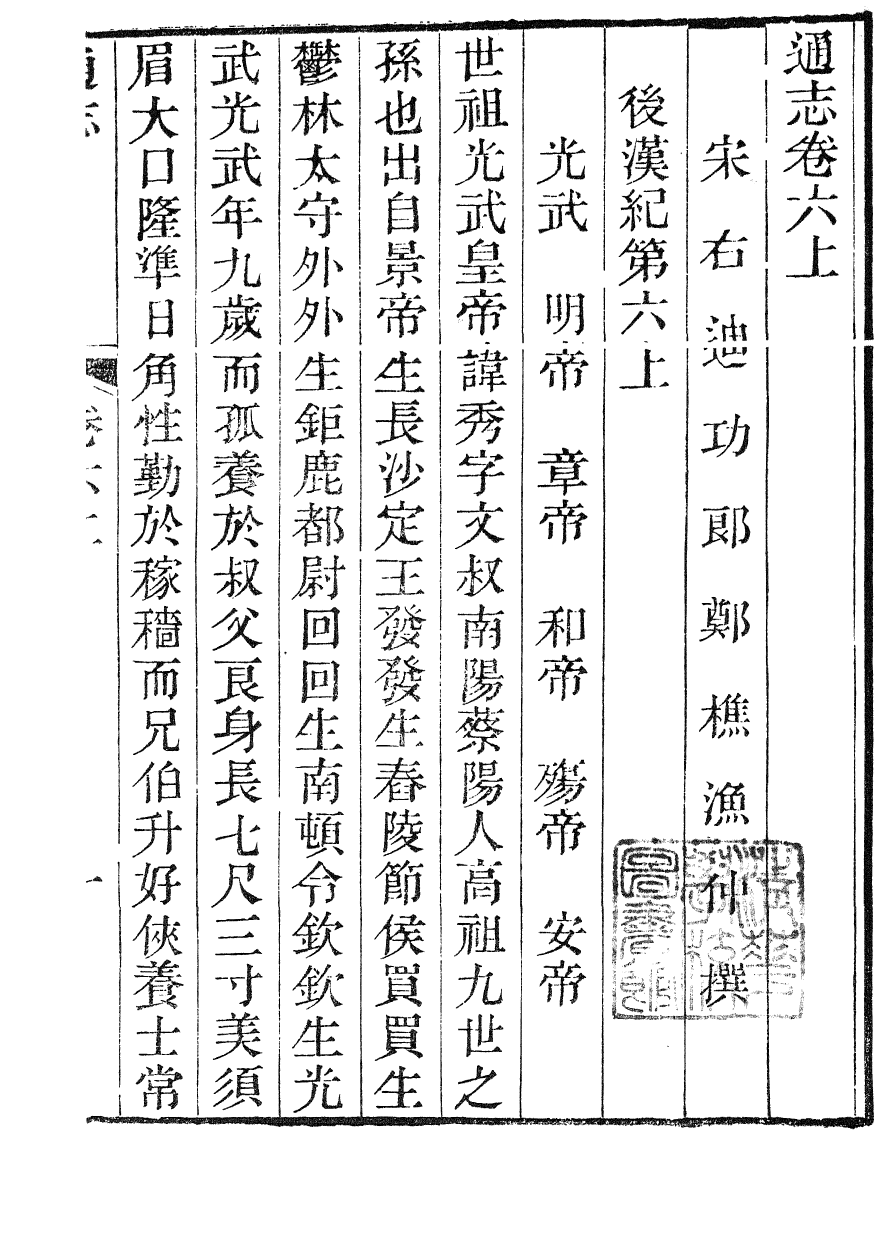 通志卷六上
宋右迪功郎鄭樵漁仲撰
後漢紀第六上
光武　明帝　章帝　和帝　殤帝　安帝
世祖光武皇帝諱秀字文叔南陽蔡陽人高祖九世之
孫也出自景帝生長沙定王發發生舂陵節侯買買生
鬱林太守外外生鉅鹿都尉回回生南頓令欽欽生光
武光武年九歲而孤養於叔父良身長七尺三寸美須
眉大口隆準日角性勤於稼穡而兄伯升好俠養士常